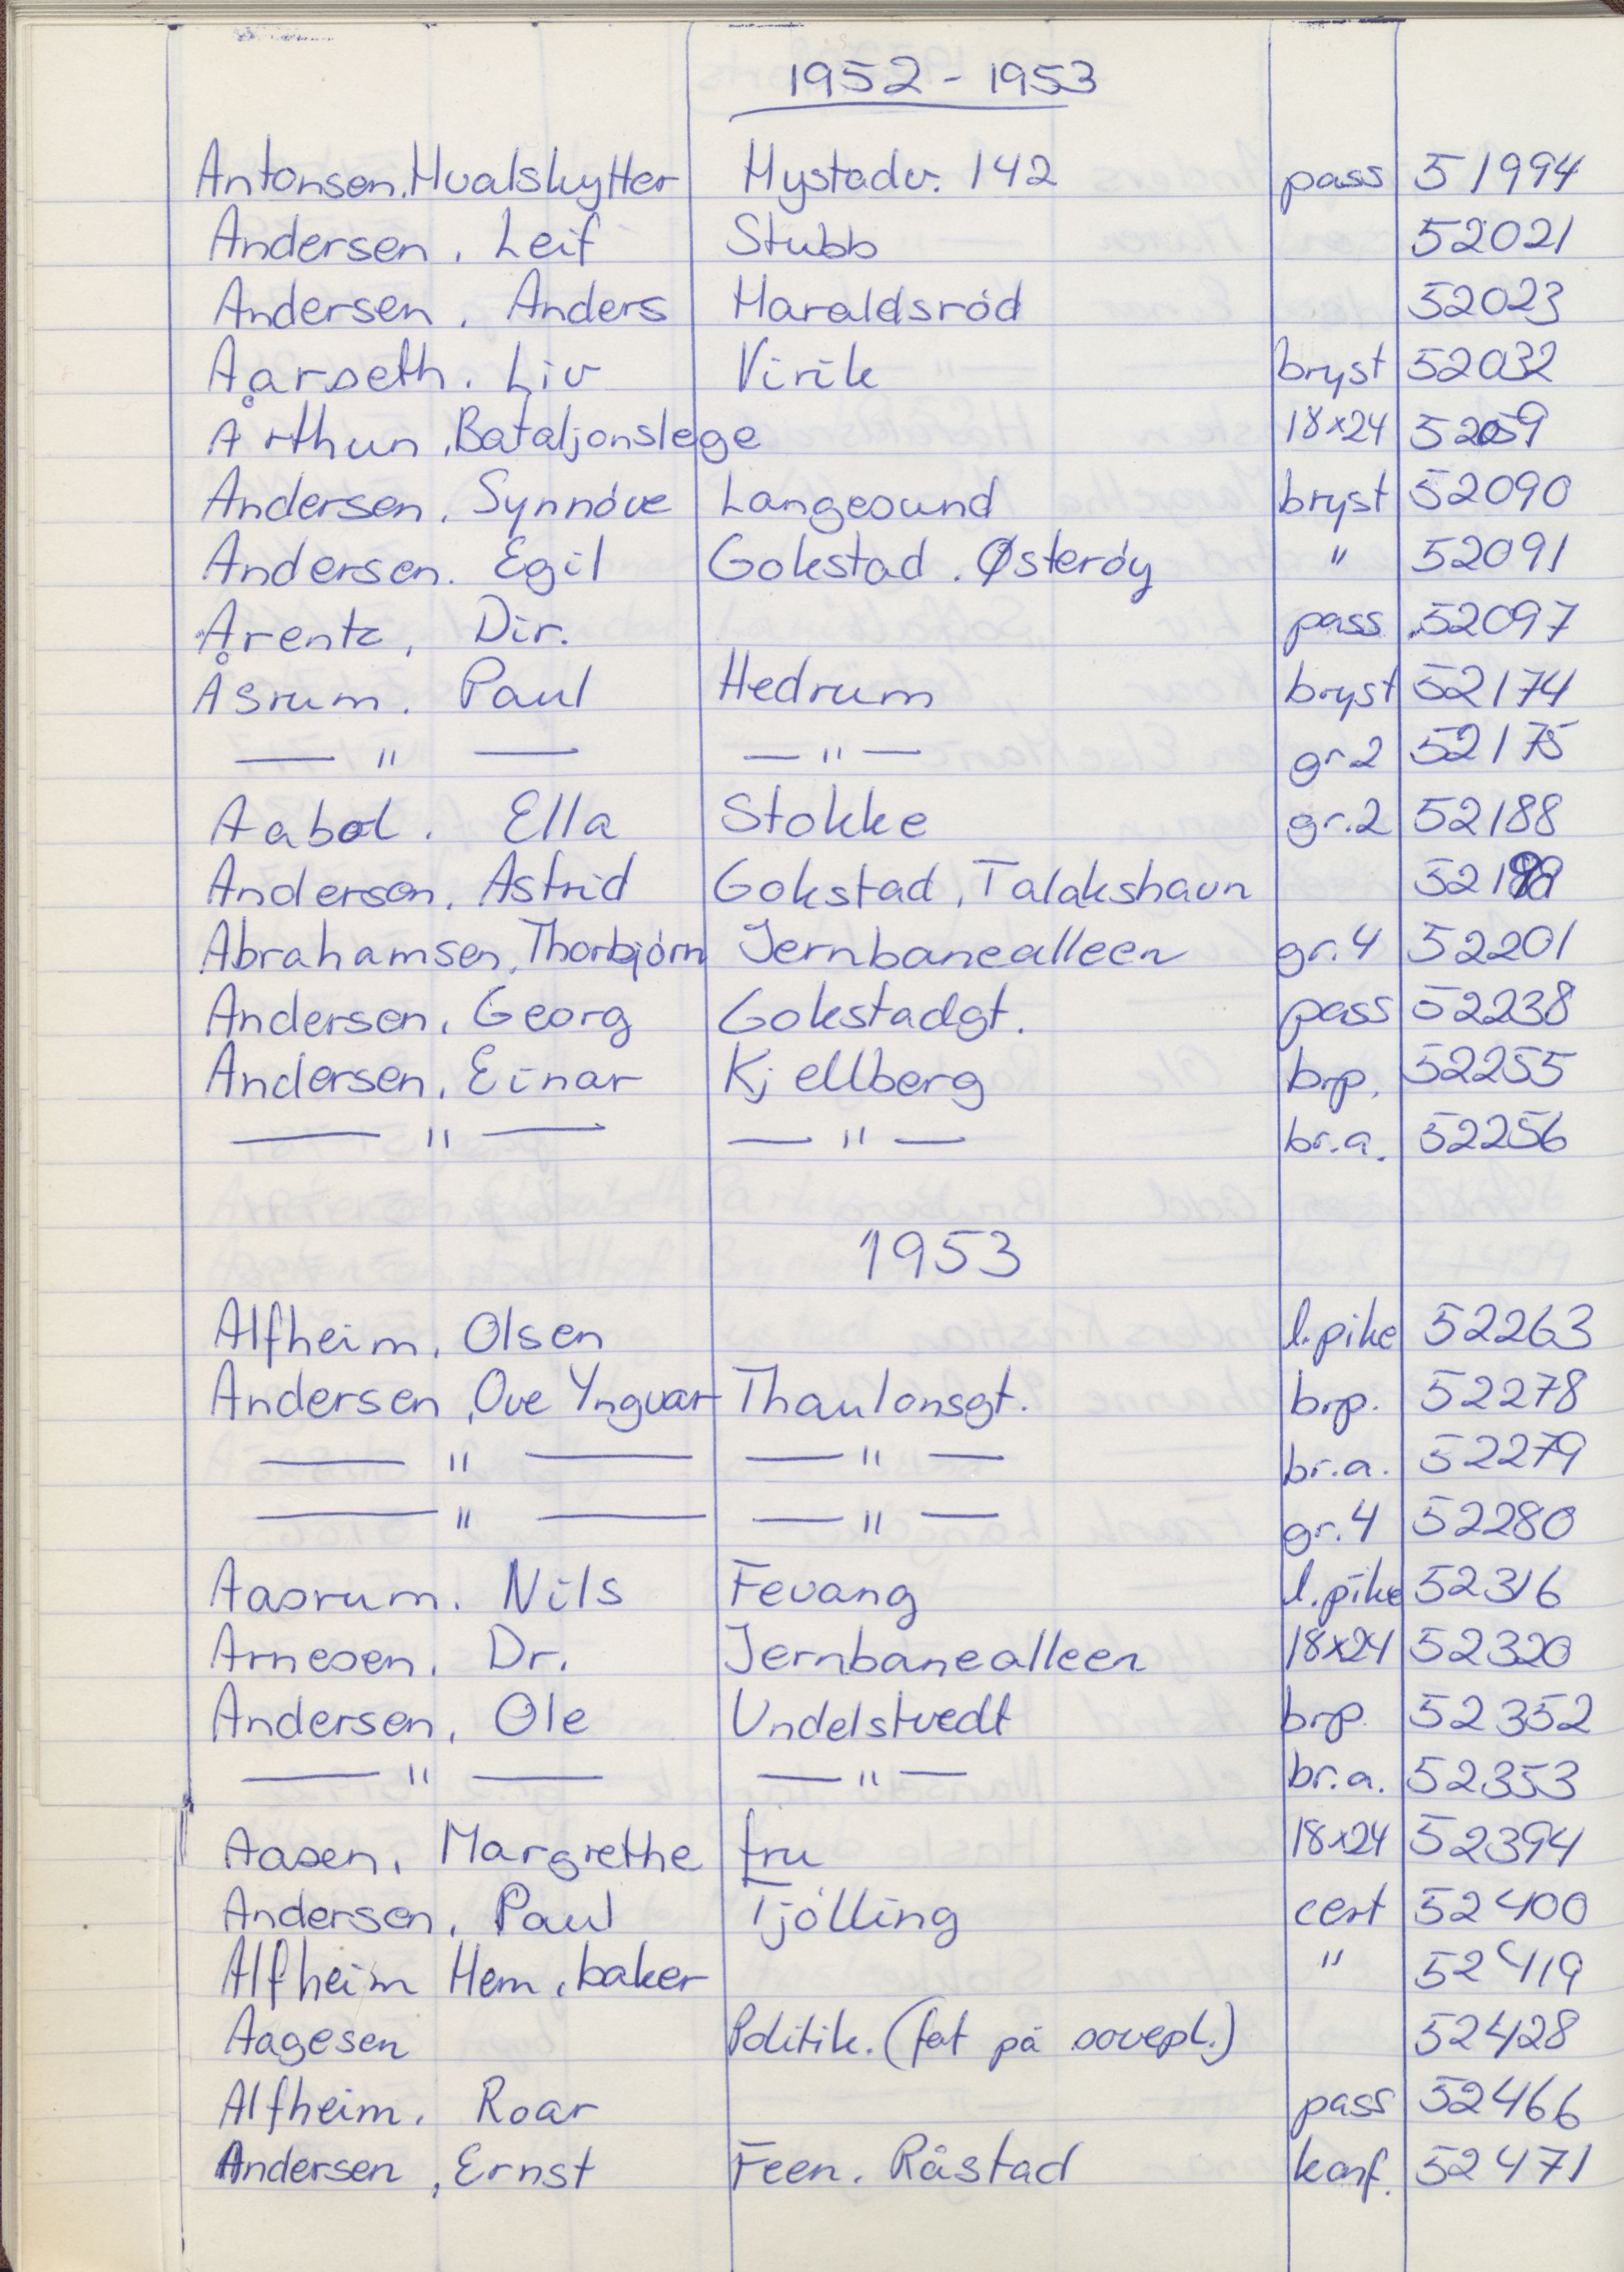 1952 - 1953
Antonsen, Hvalskytter Hystadv. 142 pass 51994
Andersen, Leif Stubb 52021
Andersen, Anders Haraldsród 52023
Aarseth, Liv Virik bryst 52032
Årthun, Bataljonslege 18x24 52059
Andersen, Synnóve Langesund bryst 52090
Andersen. Egil Gokstad. Østeróy " 52091
Arentz, Dir. pass 52097
Åsrum. Paul Hedrum bryst 52174
— " — — " — gr 2 52175
Aabol. Ella Stokke gr. 2 52188
Andersen, Astrid Gokstad, Talakshavn 52199
Abrahamsen, Thorbjórn Jernbanealleen gr. 4 52201
Andersen, Georg Gokstadgt. pass 52238
Andersen, Einar Kjellberg brp. 52255
— " — — " — br.a. 52256
1953
Alfheim, Olsen l.pike 52263
Andersen, Ove Yngvar Thaulowsgt. brp. 52278
— " — — " — br.a. 52279
— " — — " — gr. 4 52280
Aasrum. Nils Fevang l.pike 52316
Arnesen, Dr. Jernbanealleen 18x24 52320
Andersen, Ole Undelstvedt brp. 52352
— " — — " — br.a. 52353
Aasen, Margrethe fru 18x24 52394
Andersen, Paul Tjólling cert 52400
Alfheim Hem, baker " 52419
Aagesen Politik. (fat på sovepl.) 52428
Alfheim. Roar pass 52466
Andersen, Ernst Feen. Råstad konf. 52471